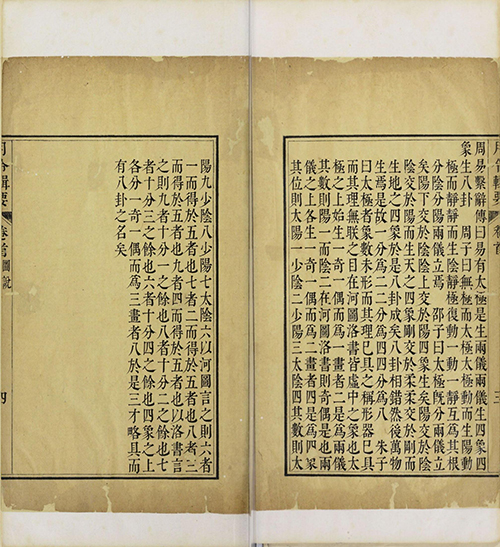 月令輯要 卷首 三
周易繫辭傳曰易有太極是生兩儀兩儀生四象四
象生八卦 周子曰無極而太極太極動而生陽動
極而靜靜而生陰靜極復動一動一靜互爲其根
分陰分陽兩儀立焉 邵子曰太極旣分兩儀立
矣陽下交於陰陰上交於陽四象生矣陽交於陰
陰交於陽而生天之四象剛交於柔柔交於剛而
生地之四象於是八卦成矣八卦相錯然後萬物
生焉是故一分爲二二分爲四四分爲八 朱子
曰太極者象數未形而其理已具之稱形器已具
而其理無眹之目在河圖洛書皆虛中之象也太
極之上始生一奇一偶而爲一畫者二是爲兩儀
其數則陽一而陰二在河圖洛書則奇偶是也兩
儀之上各生一奇一偶而爲二畫者四是爲四象
其位則太陽一少陰二少陽三太陰四其數則太
陽九少陰八少陽七太陰六以河圖言之則六者
一而得於五者也七者二而得於五者也八者三
而得於五者也九者四而得於五者也以洛書言
之則九者十分一之餘也八者十分二之餘也七
者十分三之餘也六者十分四之餘也四象之上
各分一奇一偶而爲三畫者八於是三才略具而
有八卦之名矣
月令輯要 卷首 圖說 四